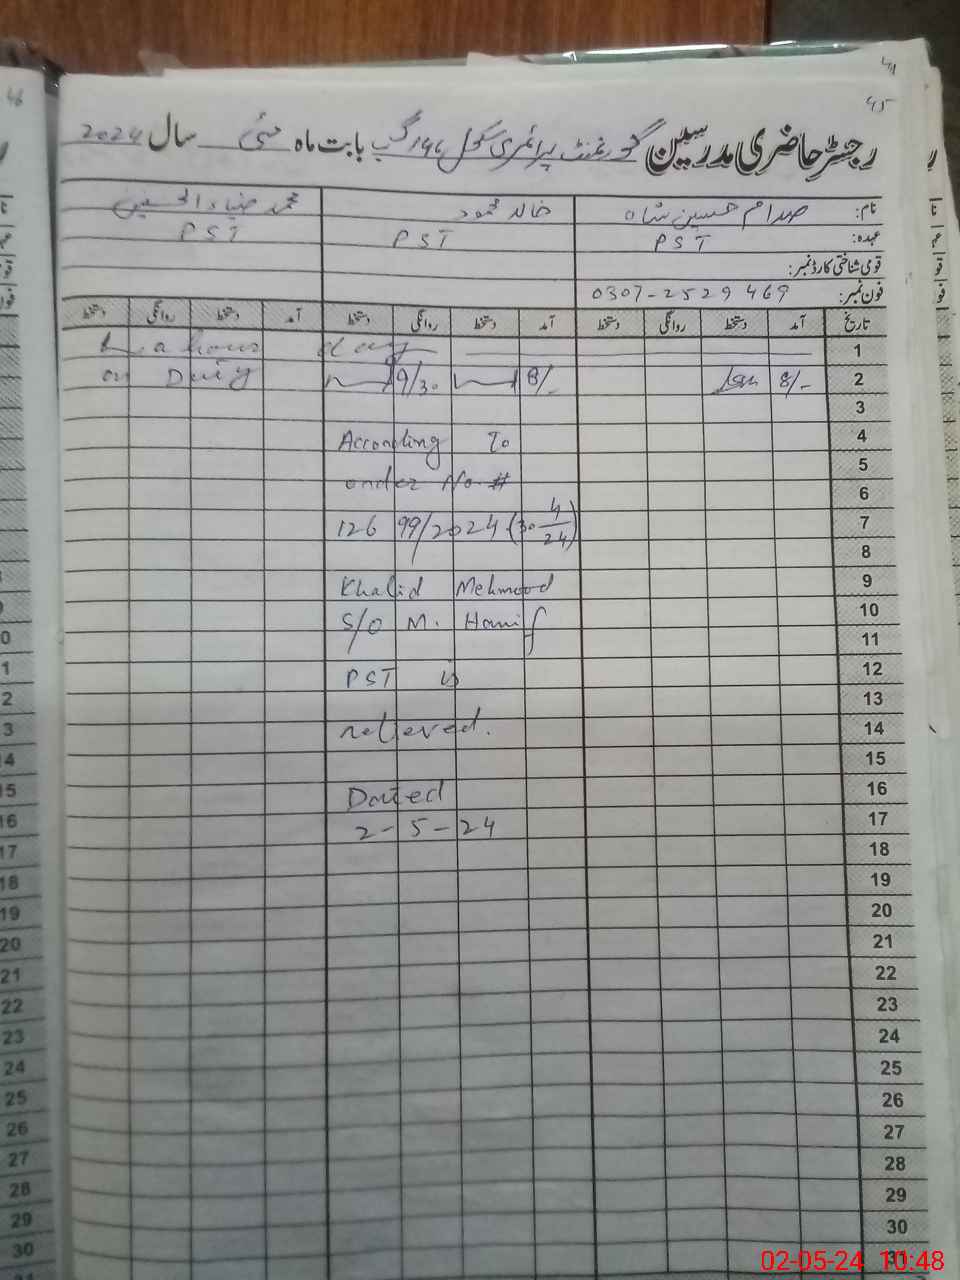 41
45
رجسٹر حاضری مدرسین گورنمنٹ پرائمری سکول گب بابت ماہ مئی سال 2024
نام: صدام حسین شاہ خالد محمود محمد ضیاء الحسنین
عہدہ: PST PST PST
قومی شناختی کارڈ نمبر:
فون نمبر: 0307-2529469
تاریخ آمد دستخط روانگی دستخط آمد دستخط روانگی دستخط آمد دستخط روانگی دستخط
1 Labour day
2 8/- 8/- 9/30 on Duty
3
4 According To
5
6 order No #
7 126 99/2024 (30-4/24)
8
9 Khalid Mehmood
10 S/O M. Hanif
11
12 PST is
13
14 relieved.
15
16 Dated
17 2-5-24
18
19
20
21
22
23
24
25
26
27
28
29
30
31
02-05-24 10:48